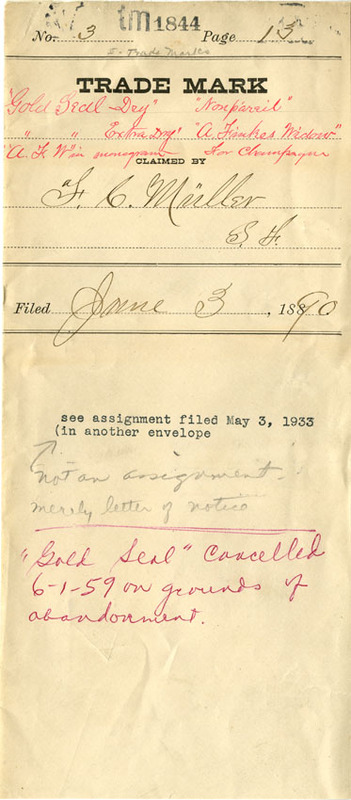 tm 1844
No. 3 Page 13
5- Trade Marks
TRADE MARK
"Gold Seal-Dry" "Nonpareil"
" " Extra Dry" "A. Finkes Widow"
"A. F. W" in monogram For Champagne
CLAIMED BY
F. C. Müller
S. F.
Filed June 3, 1890
see assignment filed May 3, 1933
(in another envelope
not an assignment.
merely letter of notice
"Gold Seal" Cancelled
6-1-59 on grounds of
abandonment.